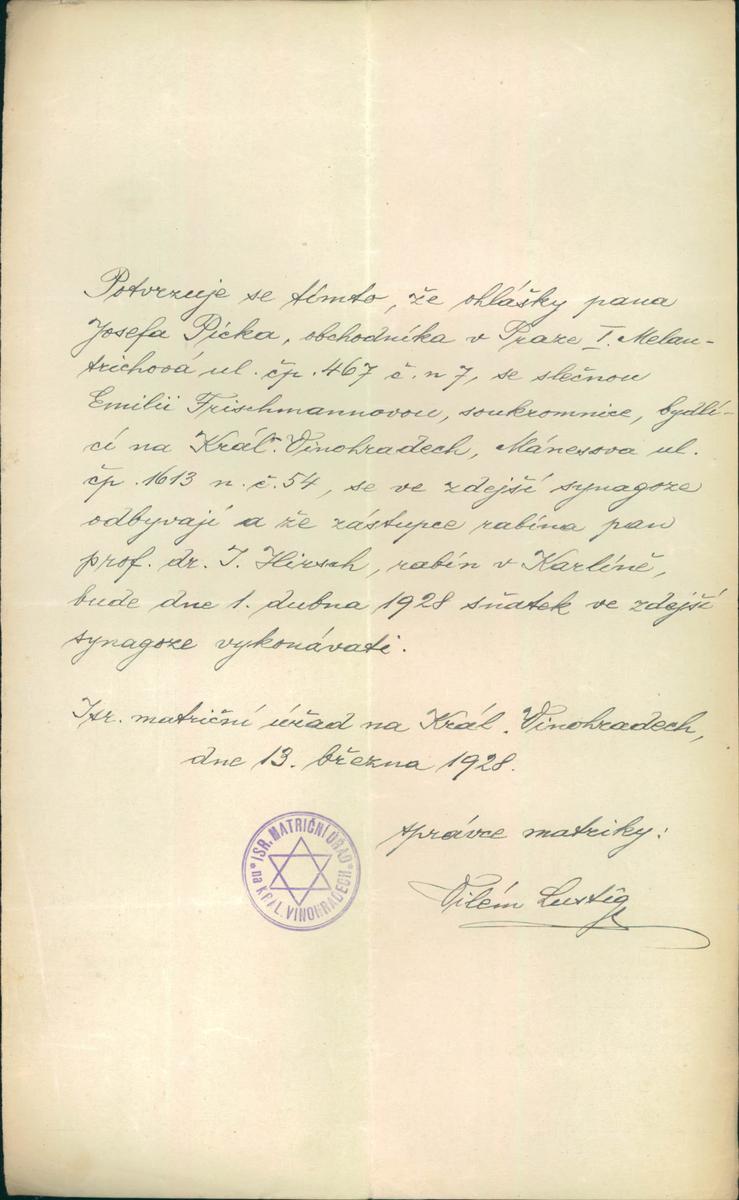 Potvrzuje se tímto, že ohlášky pana
Josefa Picka, obchodníka v Praze I. Melan-
trichová ul. čp. 467 č. n 7, se slečnou
Emilií Frischmannovou, soukromnice, bydlí-
cí na Král. Vinohradech, Mánesova ul.
čp. 1613 n. č. 54, se ve zdejší synagoze
odbyvají a že zástupce rabína pan
prof. dr. I. Hirsch, rabín v Karlíně,
bude dne 1. dubna 1928 sňatek ve zdejší
synagoze vykonávati.
Isr. matriční úřad na Král. Vinohradech,
dne 13. března 1928.
správce matriky:
Vilém Lustig
* ISR. MATRIČNÍ ÚŘAD *
na KRÁL. VINOHRADECH